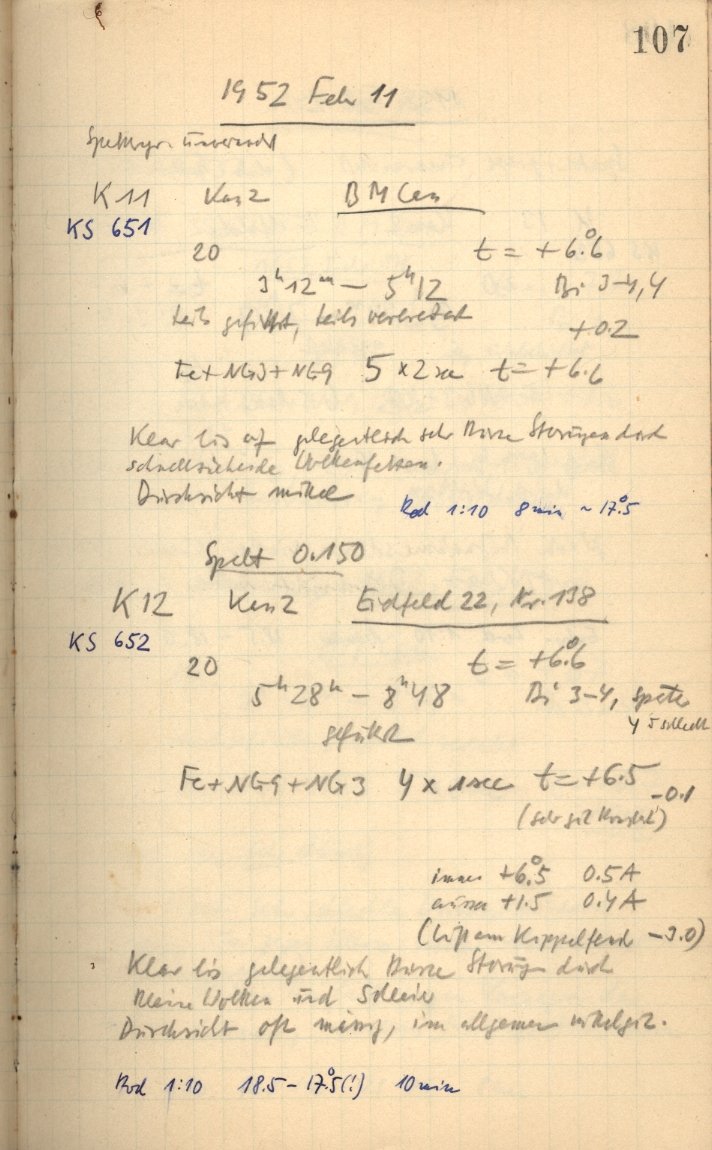 107
1952 Febr 11
Spektrogr. unverändert
K11 Kas2 BM Cen
KS 651
20 t = +6.°6
3ʰ12ᵐ – 5ʰ12 Bi 3-4,4
teils geführt, teils verbreitert +0.2
Fe+NG3+NG9 5×2sec t=+6.6
Klar bis auf gelegentlich sehr kurze Störungen durch
schnellziehende Wolkenfetzen.
Durchsicht mittel
Rod 1:10 8min ~17.°5
Spalt 0.150
K12 Kas2 Eidfeld 22, Nr. 138
KS 652
20 t = +6.°6
5ʰ28ᵐ – 8ʰ48 Bi 3-4, später
geführt 4 5 schlecht
Fe+NG9+NG3 4×1sec t=+6.5 -0.1
(sehr gut konstant)
innen +6.°5 0.5A
aussen +1.5 0.4A
(Luft am Kippelfend -3.0)
Klar bis gelegentlich kurze Störungen durch
kleine Wolken und Schleier
Durchsicht oft mässig, im allgemeinen mittelgut.
Rod 1:10 18.5 – 17.°5(!) 10min